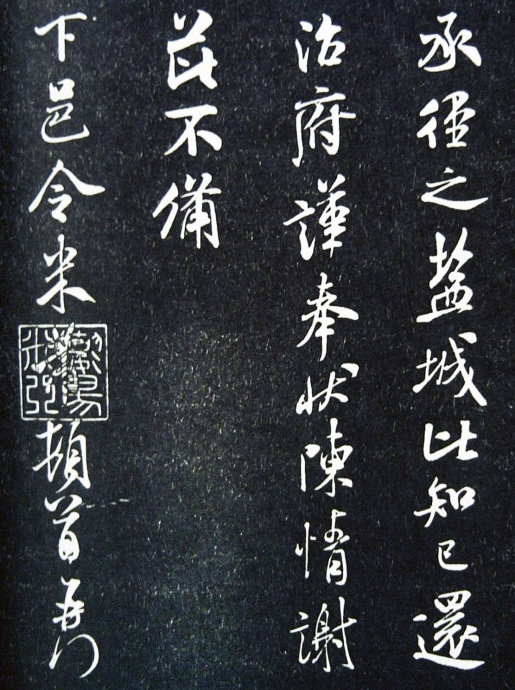 承徑之鹽城比知已還
治府謹奉狀陳情謝
芘不備
下邑令米芾頓首再